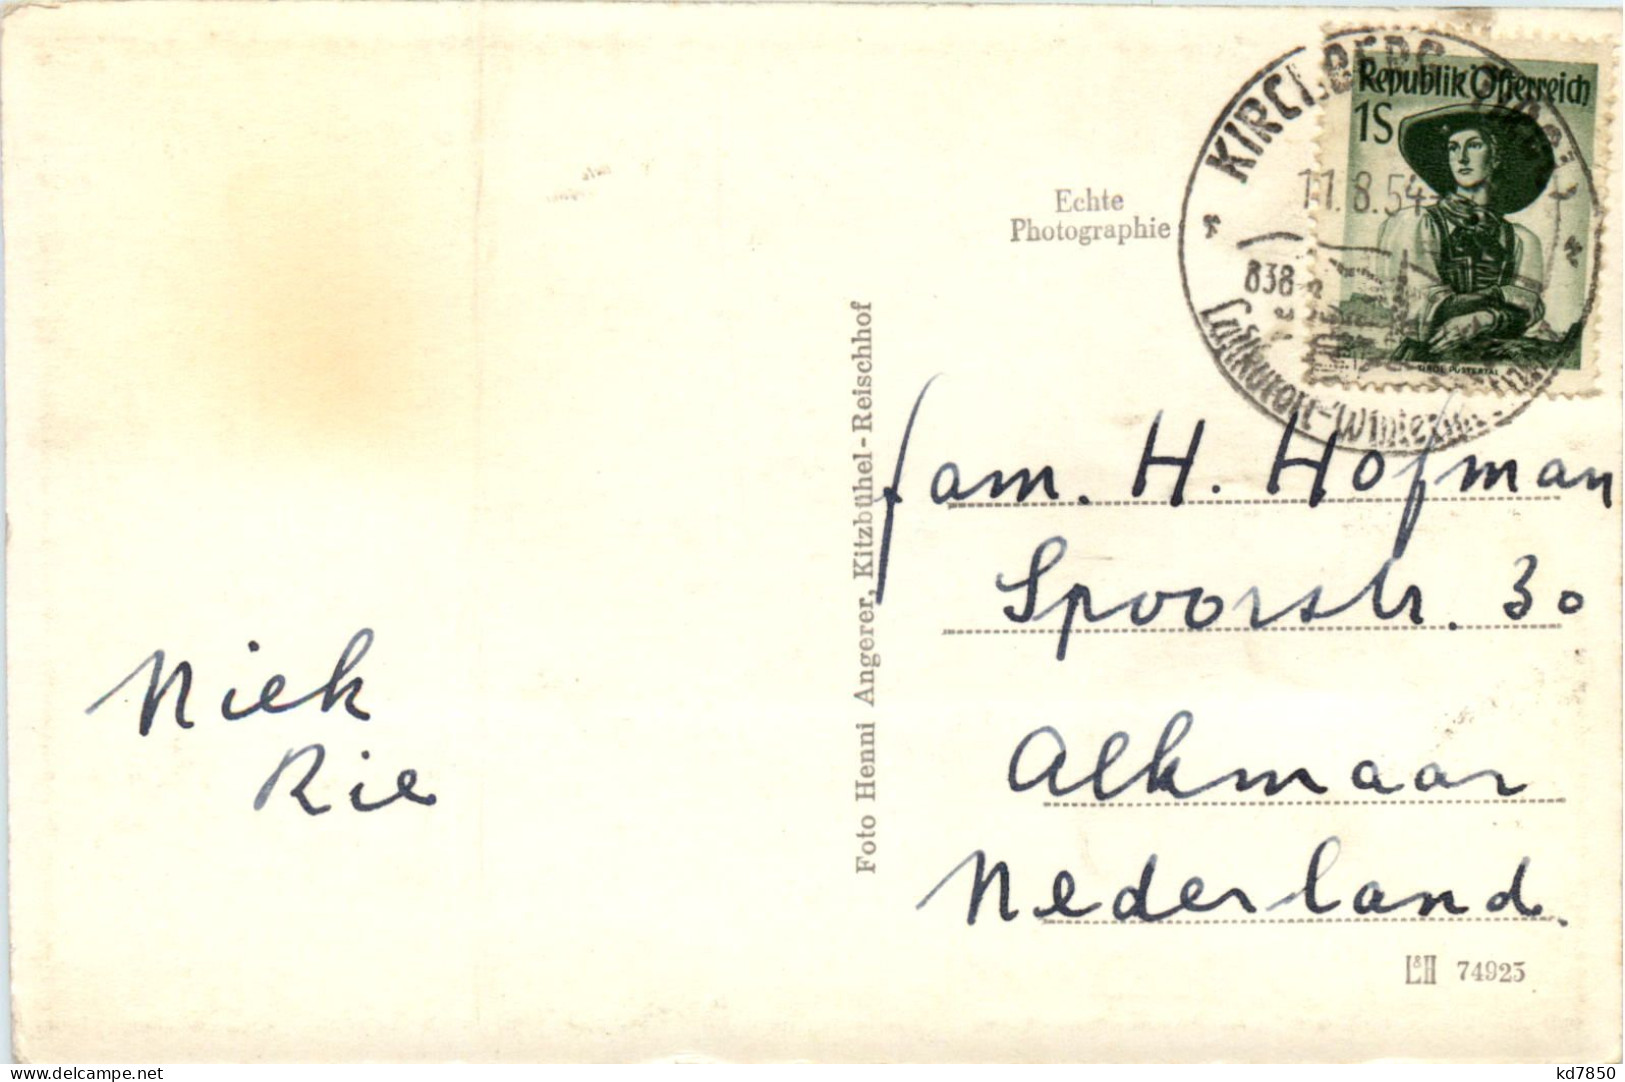 Republik Österreich
1S
KIRCHBERG (TIROL)
11.8.54
838 m
Luftkurort-Wintersp
TIROL PUSTERTAL
Echte
Photographie
Foto Henni Angerer, Kitzbühel-Reischhof
fam. H. Hofman
Spoorstr. 30
Alkmaar
Nederland.
Niek
Rie
L&H 74925
delcampe.net
kd7850